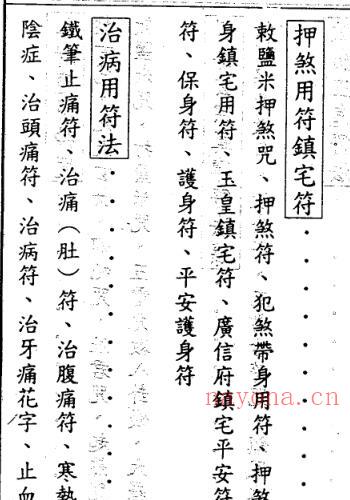 押煞用符鎮宅符‧‧‧‧‧‧‧‧
敕鹽米押煞咒、押煞符、犯煞帶身用符、押煞
身鎮宅用符、玉皇鎮宅符、廣信府鎮宅平安符
符、保身符、護身符、平安護身符
治病用符法‧‧‧‧‧‧‧‧
鐵筆止痛符、治痛（肚）符、治腹痛符、寒熱
陰症、治頭痛符、治病符、治牙痛花字、止血
nayona.cn